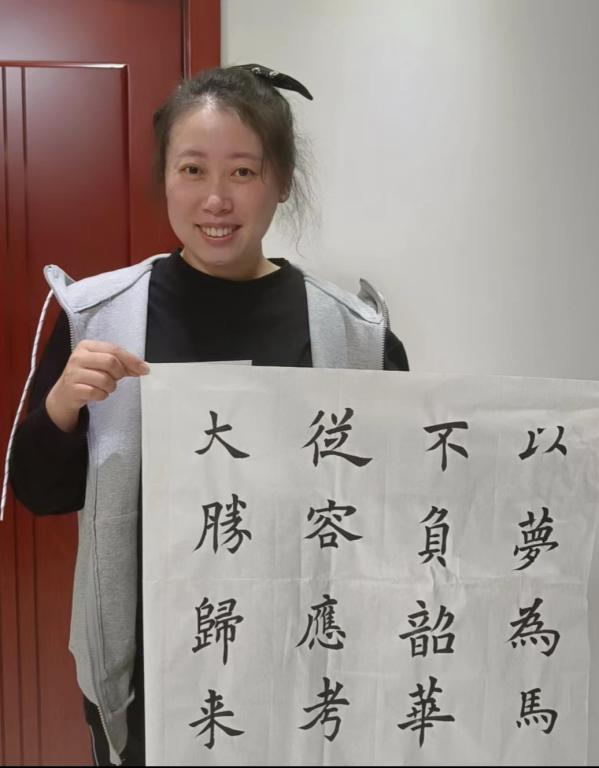 以夢為馬
不負韶華
從容應考
大勝歸来